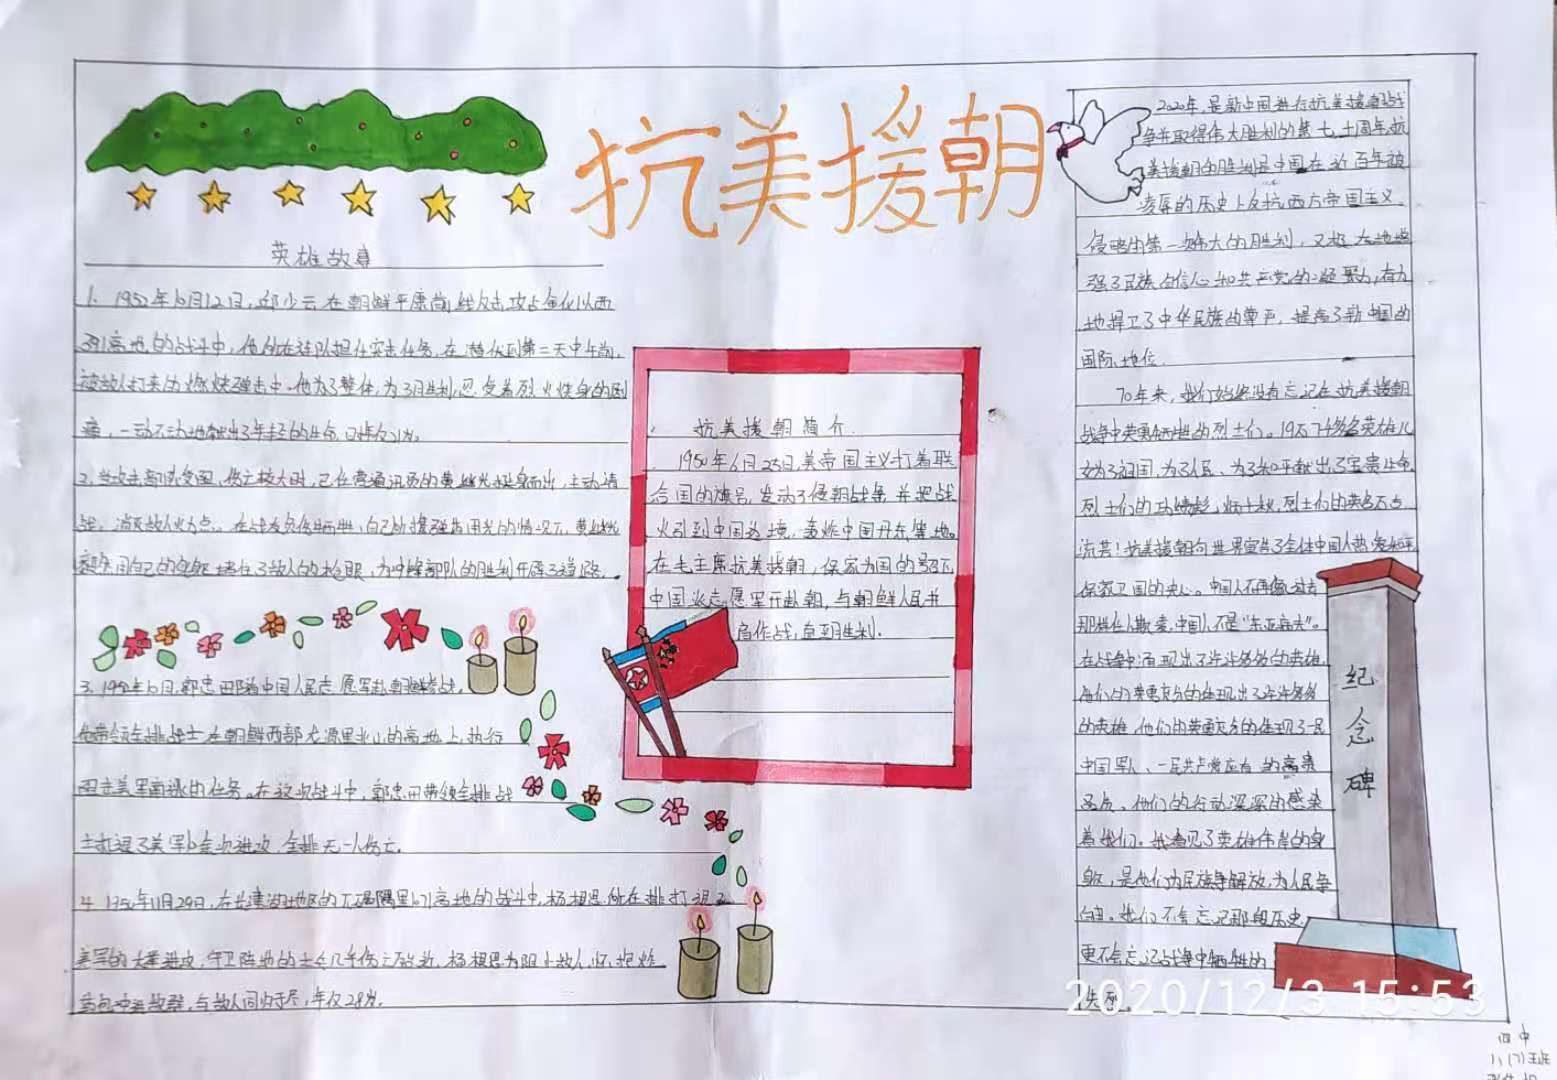 抗美援朝
英雄故事
1. 1952年10月12日,邱少云在朝鲜平康前线反击攻占金化以西
391高地的战斗中,他所在连队担任突击任务,在潜伏到第二天中午前,
被敌人打来的燃烧弹击中,他为了整体,为了胜利,忍受着烈火烧身的剧
痛,一动不动地献出了年轻的生命,
2.当攻击部队受阻,伤亡较大时,已任营通讯员的黄继光挺身而出,主动请
战,消灭敌人火力点。在战友负伤牺牲,自己所携弹药用光的情况下,黄继光
用自己的身躯堵住了敌人的枪眼,为冲锋部队的胜利开辟了道路。
3. 郭忠田随中国人民志愿军赴朝鲜参战。
他带领全排战士在朝鲜西部龙源里北山的高地上,执行
阻击美军南逃的任务。在这次战斗中,郭忠田带领全排战
士打退了美军10余次进攻,全排无一人伤亡。
4. 11月29日,在长津湖地区的下碣隅里1071高地的战斗中,杨根思所在排打退了
美军的 进攻,守卫阵地的 杨根思为阻止敌人,怀抱炸
药包冲进敌群,与敌人同归于尽,年仅28岁。
抗美援朝简介
1950年6月25日,美帝国主义打着联
合国的旗号,发动了侵朝战争,并把战
火引到中国边境,轰炸中国丹东等地。
在毛主席抗美援朝,保家为国的号召下,
中国 志愿军开赴朝,与朝鲜人民并
肩作战,直到胜利.
2020年是新中国进行抗美援朝战
争并取得伟大胜利的第七十周年,抗
美援朝的胜利是中国在 百年被
凌辱的历史上反抗西方帝国主义
侵略的第一次伟大的胜利,又极大地增
强了民族自信心和共产党的凝聚力,有力
地捍卫了中华民族的尊严,提高了新中国的
国际地位.
70年来,我们始终没有忘记在抗美援朝
战争中英勇牺牲的烈士们。19万7千多名英雄儿
女为了祖国,为了人民,为了和平献出了宝贵生命
烈士们的功绩彪炳千秋,烈士们的英名万古
流芳!抗美援朝向世界宣告了全体中国人热爱和平
保家卫国的决心。中国人不再像过去
那样任人欺凌,中国人不是“东亚病夫”。
在战争中涌现出了许许多多的英雄,
他们的英勇充分的体现出了许许多多
的英雄,他们的英勇充分的体现了一名
中国军人、一名共产党应有的高贵
品质。他们的行动深深的感染
着我们。我看见了英雄伟岸的身
躯,是他们为民族争解放,为人民争
自由。我们不会忘记那段历史,
更不会忘记战争中牺牲的
先烈。
纪念碑
2020/12/3 15:53
四中